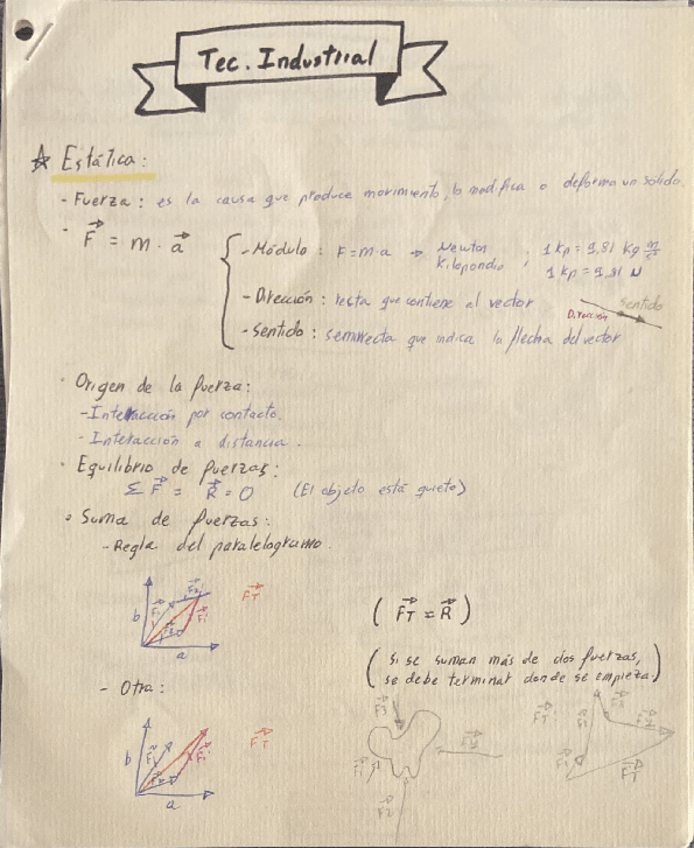 Tec. Industrial
☆ Estática:
- Fuerza: es la causa que produce movimiento, lo modifica o deforma un sólido.
- F = m · a
- Módulo: F = m · a → Newton ; 1 kp = 9,81 kg m/s²
Kilopondio ; 1 kp = 9,81 N
- Dirección: recta que contiene al vector
Dirección sentido
- Sentido: semirrecta que indica la flecha del vector
· Origen de la fuerza:
- Interacción por contacto.
- Interacción a distancia.
· Equilibrio de fuerzas:
Σ F = R = 0 (El objeto está quieto)
· Suma de fuerzas:
- Regla del paralelogramo.
b F1 F2 F2' F1' a FT
(FT = R)
(Si se suman más de dos fuerzas,
se debe terminar donde se empieza.)
- Otra:
b F1 F2 F1' a FT
F3
F1
F2
FT